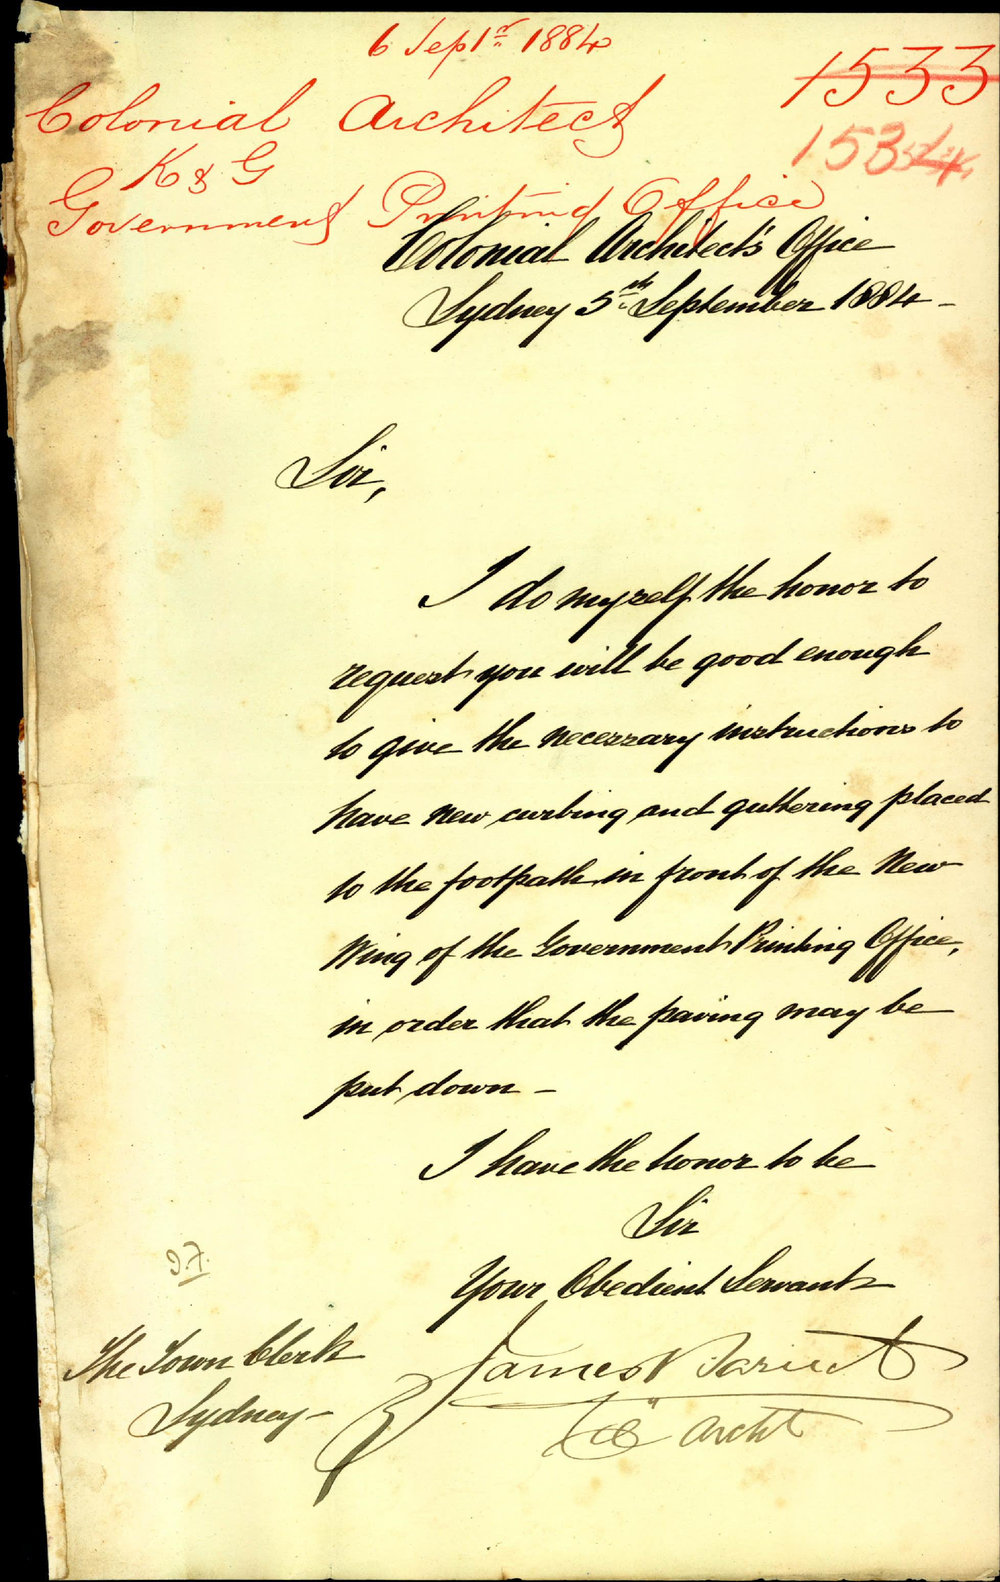 6 Sep1r 1884
1533
Colonial Architect
153
K & G
Government Printing Office
Colonial Architect's Office
Sydney 5th September 1884 -
Sir,
I do myself the honor to
request you will be good enough
to give the necessary instructions to
have new curbing and guttering placed
to the footpath in front of the New
Wing of the Government Printing Office,
in order that the paving may be
put down -
I have the honor to be
Sir
Your Obedient Servant
James Barnet
Col Archt
The Town Clerk
Sydney -